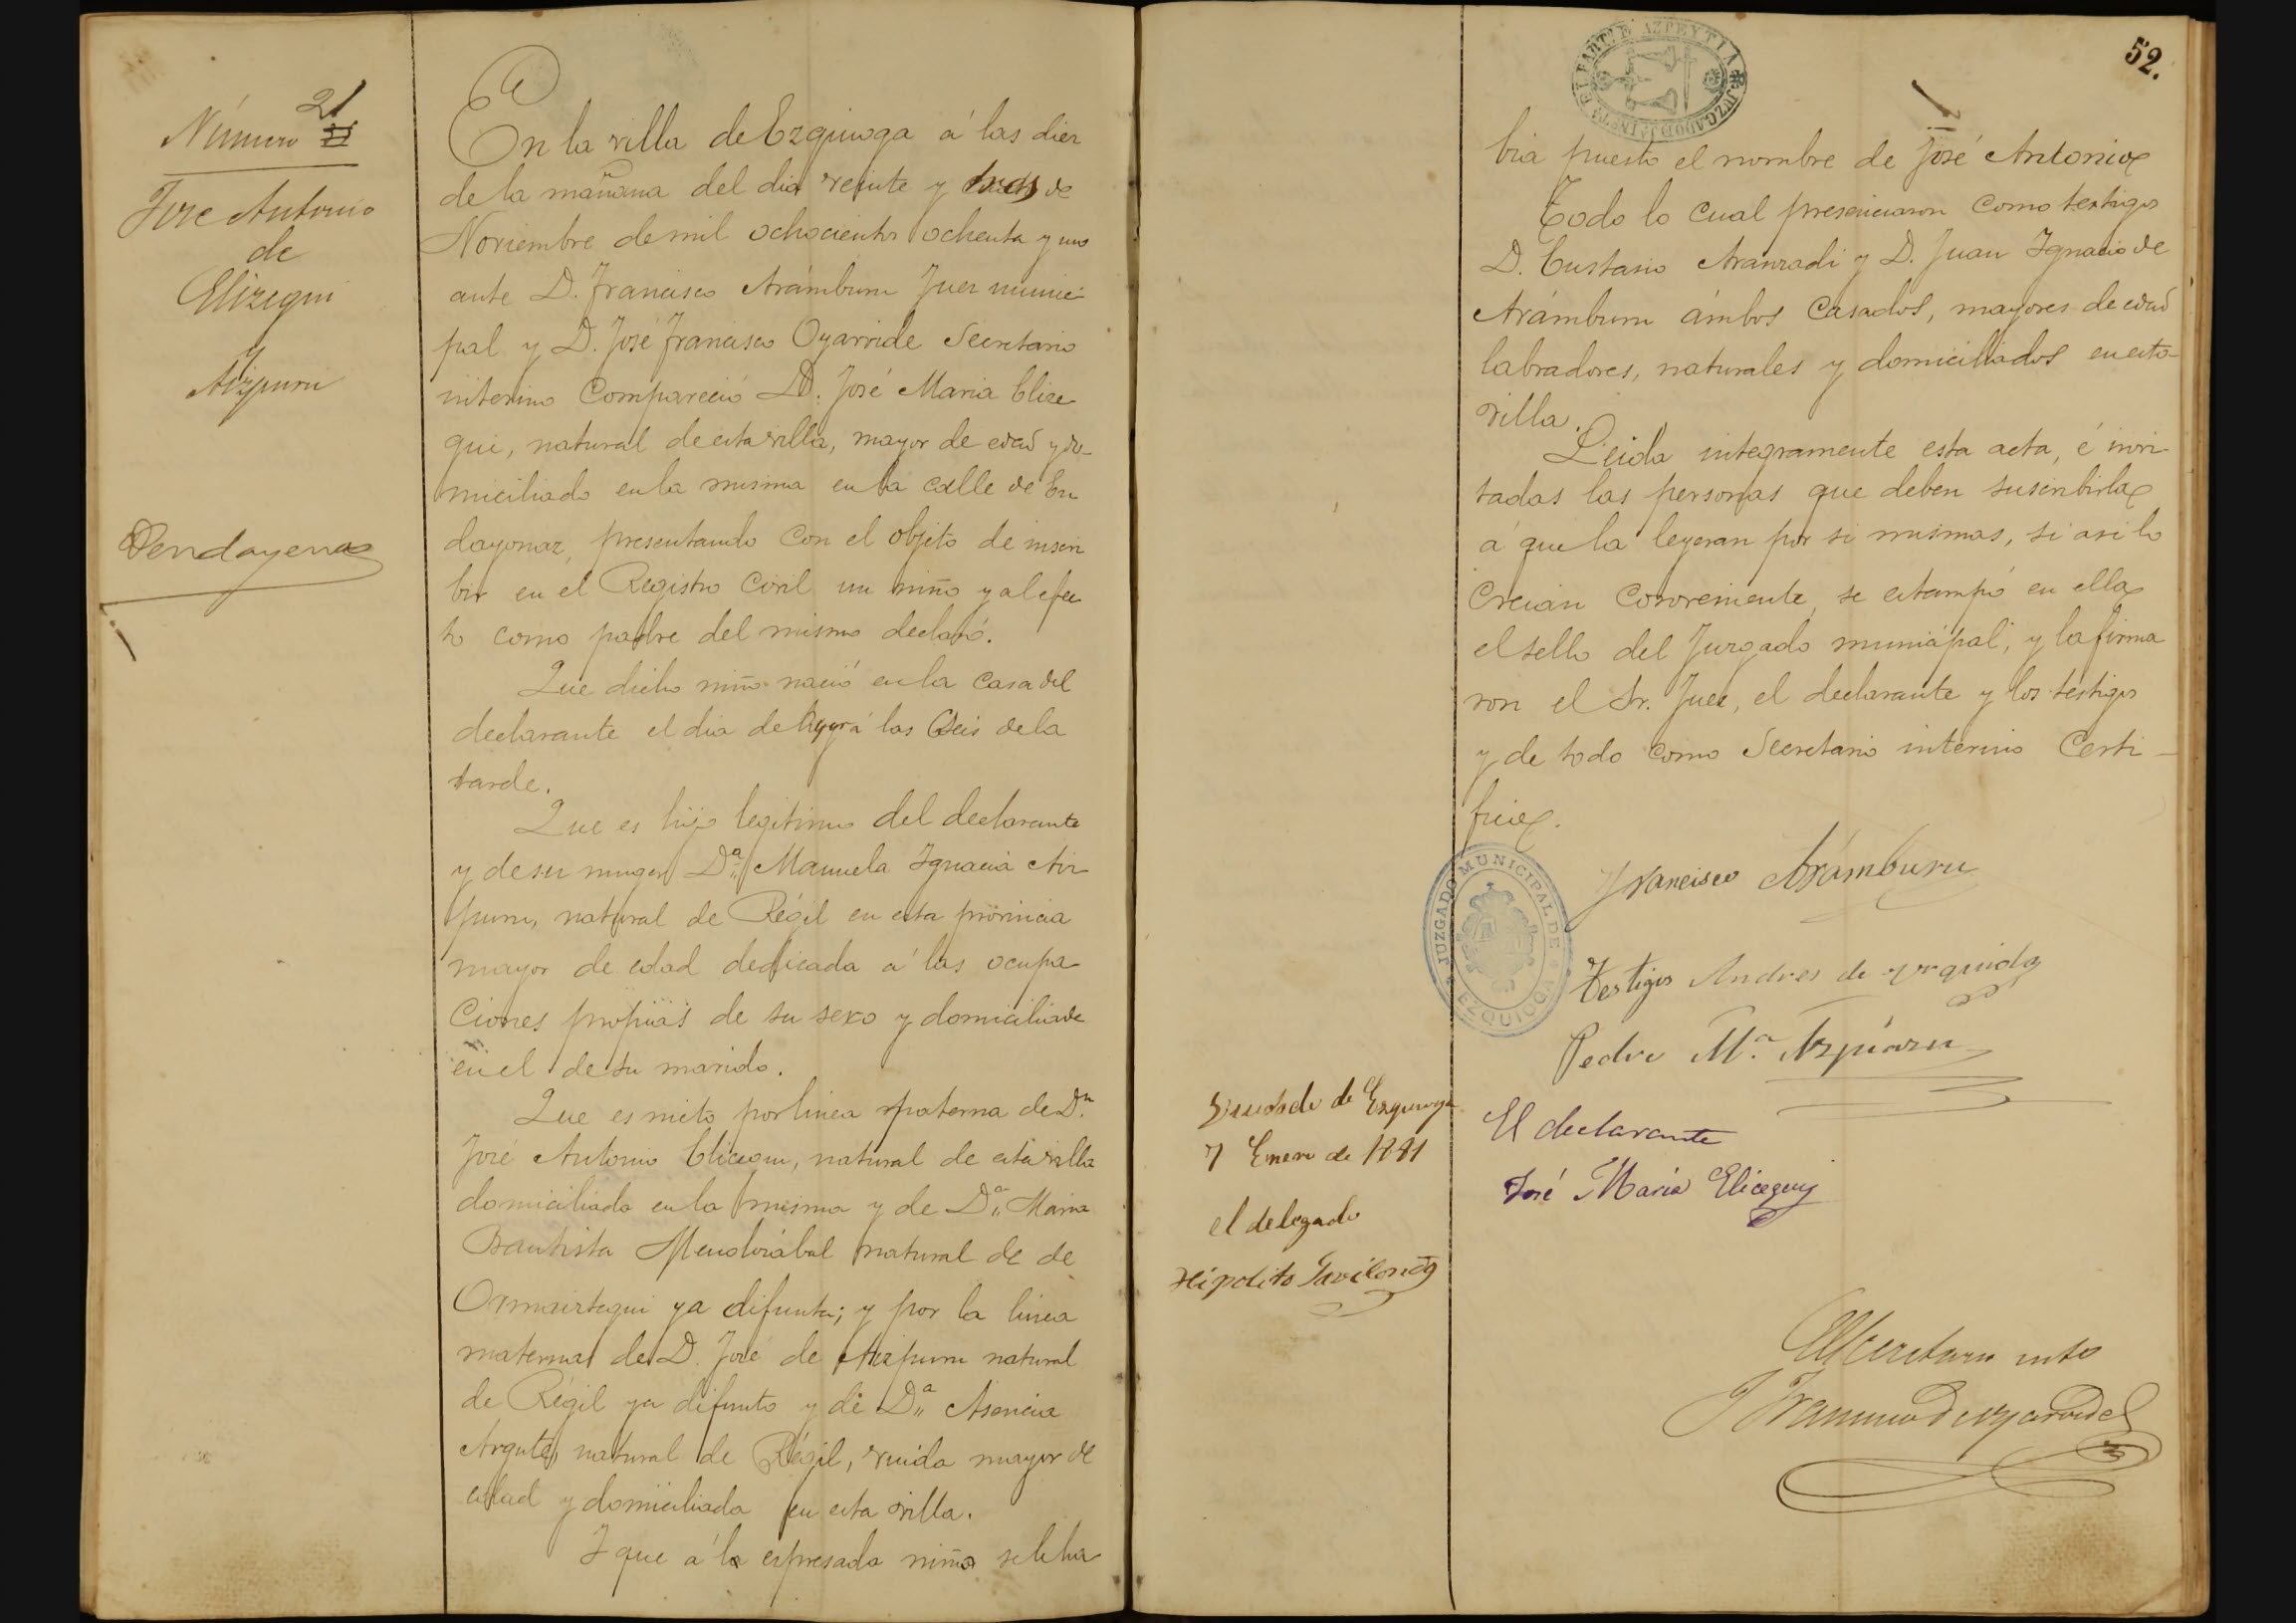 Número 21
Jose Antonio
de
Elizegui
y
Aizpuru
En la villa de Ezquioga á las diez
de la mañana del dia veinte y tres de
Noviembre de mil ochocientos ochenta y uno
ante D. Francisco Arámburu Juez munici-
pal y D. José Francisco Oyarvide Secretario
interino Compareció D. José Maria Elize
gui, natural de esta villa, mayor de edad y do-
miciliado en la misma en la calle de
presentando con el objeto de inscri
bir en el Registro Civil un niño y al efec
to como padre del mismo declaró.
Que dicho niño nació en la Casa del
declarante el dia de las seis de la
tarde.
Que es hijo legitimo del declarante
y de su muger Dª. Manuela Ignacia Aiz
puru, natural de Régil en esta provincia
mayor de edad dedicada á las ocupa
Ciones propias de su sexo y domiciliada
en el de su marido.
Que es nieto por linea paterna de Dn.
José Antonio Elicegui, natural de esta villa
domiciliado en la misma y de Dª. Maria
Bautista Mendizábal natural de de
Ormaiztegui ya difunta; y por la linea
materna de D. José de Aizpuru natural
de Régil ya difunto y de Dª. Asencia
natural de Régil, viuda mayor de
edad y domiciliada en esta villa.
Y que á la espresada niño se le ha
52.
PARTº E AZPEYTIA JUZGADO
bia puesto el nombre de José Antonio
Todo lo cual presenciaron como testigos
D. Eustasio Aranzadi y D. Juan Ignacio de
Arámburu ámbos Casados, mayores de edad
labradores, naturales y domiciliados en esta
villa.
Leida integramente esta acta, é invi-
tadas las personas que deben suscribirla
á que la leyeran por si mismas, si asi lo
Creian Conveniente, se estampó en ella
el sello del Juzgado municipal, y la firma
ron el Sr. Juez, el declarante y los testigos
y de todo como Secretario interino Certi-
fico.
JUZGADO MUNICIPAL DE
EZQUIOGA
Francisco Arámburu
Testigos Andres de Urquiola
Pedro Mª. Azpiazu
El declarante
José Maria Elicegui
de Ezquioga
7 Enero de 1881
el delegado
Hipolito
El Secretario into